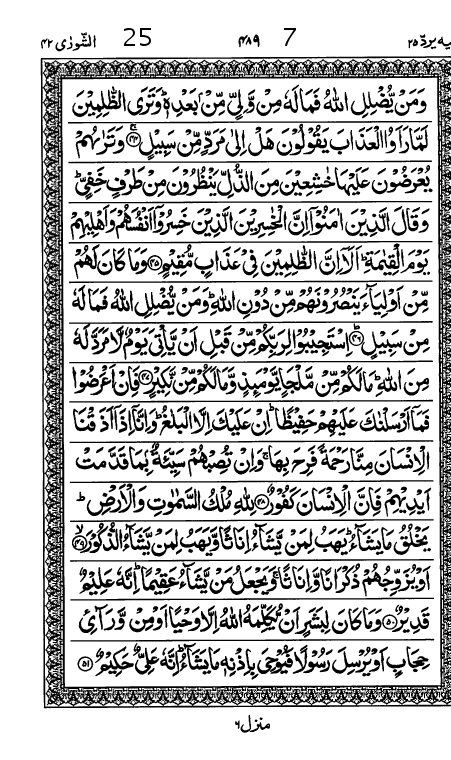 الشورٰى ۴۲ 25 ۴۸۹ 7 یه یردّ ۲۵
وَمَنْ يُّضْلِلِ اللّٰهُ فَمَا لَهٗ مِنْ وَّلِيٍّ مِّنْۢ بَعْدِهٖ ؕ وَتَرَى الظّٰلِمِيْنَ
لَمَّا رَاَوُا الْعَذَابَ يَقُوْلُوْنَ هَلْ اِلٰى مَرَدٍّ مِّنْ سَبِيْلٍ ۚ﴿۴۴﴾ وَتَرٰىهُمْ
يُعْرَضُوْنَ عَلَيْهَا خٰشِعِيْنَ مِنَ الذُّلِّ يَنْظُرُوْنَ مِنْ طَرْفٍ خَفِيٍّ ؕ
وَقَالَ الَّذِيْنَ اٰمَنُوْۤا اِنَّ الْخٰسِرِيْنَ الَّذِيْنَ خَسِرُوْۤا اَنْفُسَهُمْ وَاَهْلِيْهِمْ
يَوْمَ الْقِيٰمَةِ ؕ اَلَاۤ اِنَّ الظّٰلِمِيْنَ فِيْ عَذَابٍ مُّقِيْمٍ ﴿۴۵﴾ وَمَا كَانَ لَهُمْ
مِّنْ اَوْلِيَآءَ يَنْصُرُوْنَهُمْ مِّنْ دُوْنِ اللّٰهِ ؕ وَمَنْ يُّضْلِلِ اللّٰهُ فَمَا لَهٗ
مِنْ سَبِيْلٍ ؕ﴿۴۶﴾ اِسْتَجِيْبُوْا لِرَبِّكُمْ مِّنْ قَبْلِ اَنْ يَّاْتِيَ يَوْمٌ لَّا مَرَدَّ لَهٗ
مِنَ اللّٰهِ ؕ مَا لَكُمْ مِّنْ مَّلْجَاٍ يَّوْمَئِذٍ وَّمَا لَكُمْ مِّنْ نَّكِيْرٍ ﴿۴۷﴾ فَاِنْ اَعْرَضُوْا
فَمَاۤ اَرْسَلْنٰكَ عَلَيْهِمْ حَفِيْظًا ؕ اِنْ عَلَيْكَ اِلَّا الْبَلٰغُ ؕ وَاِنَّاۤ اِذَاۤ اَذَقْنَا
الْاِنْسَانَ مِنَّا رَحْمَةً فَرِحَ بِهَا ۚ وَاِنْ تُصِبْهُمْ سَيِّئَةٌۢ بِمَا قَدَّمَتْ
اَيْدِيْهِمْ فَاِنَّ الْاِنْسَانَ كَفُوْرٌ ﴿۴۸﴾ لِلّٰهِ مُلْكُ السَّمٰوٰتِ وَالْاَرْضِ ؕ
يَخْلُقُ مَا يَشَآءُ ؕ يَهَبُ لِمَنْ يَّشَآءُ اِنَاثًا وَّيَهَبُ لِمَنْ يَّشَآءُ الذُّكُوْرَ ۙ﴿۴۹﴾
اَوْ يُزَوِّجُهُمْ ذُكْرَانًا وَّاِنَاثًا ۚ وَيَجْعَلُ مَنْ يَّشَآءُ عَقِيْمًا ؕ اِنَّهٗ عَلِيْمٌ
قَدِيْرٌ ﴿۵۰﴾ وَمَا كَانَ لِبَشَرٍ اَنْ يُّكَلِّمَهُ اللّٰهُ اِلَّا وَحْيًا اَوْ مِنْ وَّرَآئِ
حِجَابٍ اَوْ يُرْسِلَ رَسُوْلًا فَيُوْحِيَ بِاِذْنِهٖ مَا يَشَآءُ ؕ اِنَّهٗ عَلِيٌّ حَكِيْمٌ ﴿۵۱﴾
منزل ۶